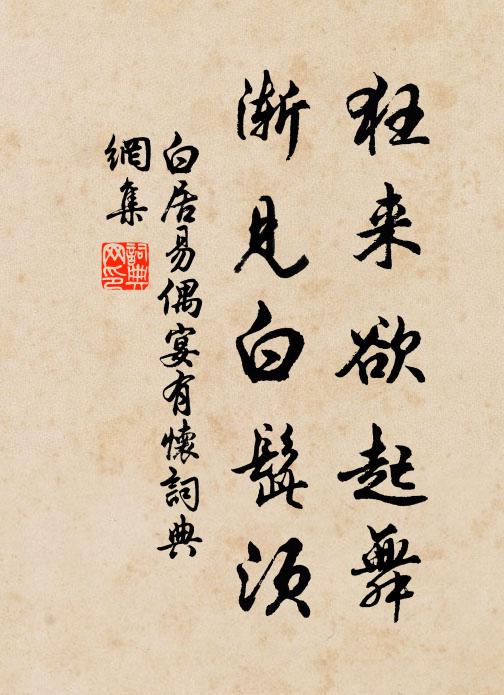 狂来欲起舞
渐见白髭须
白居易偶宴有懷詞典
網集
詞典
网印